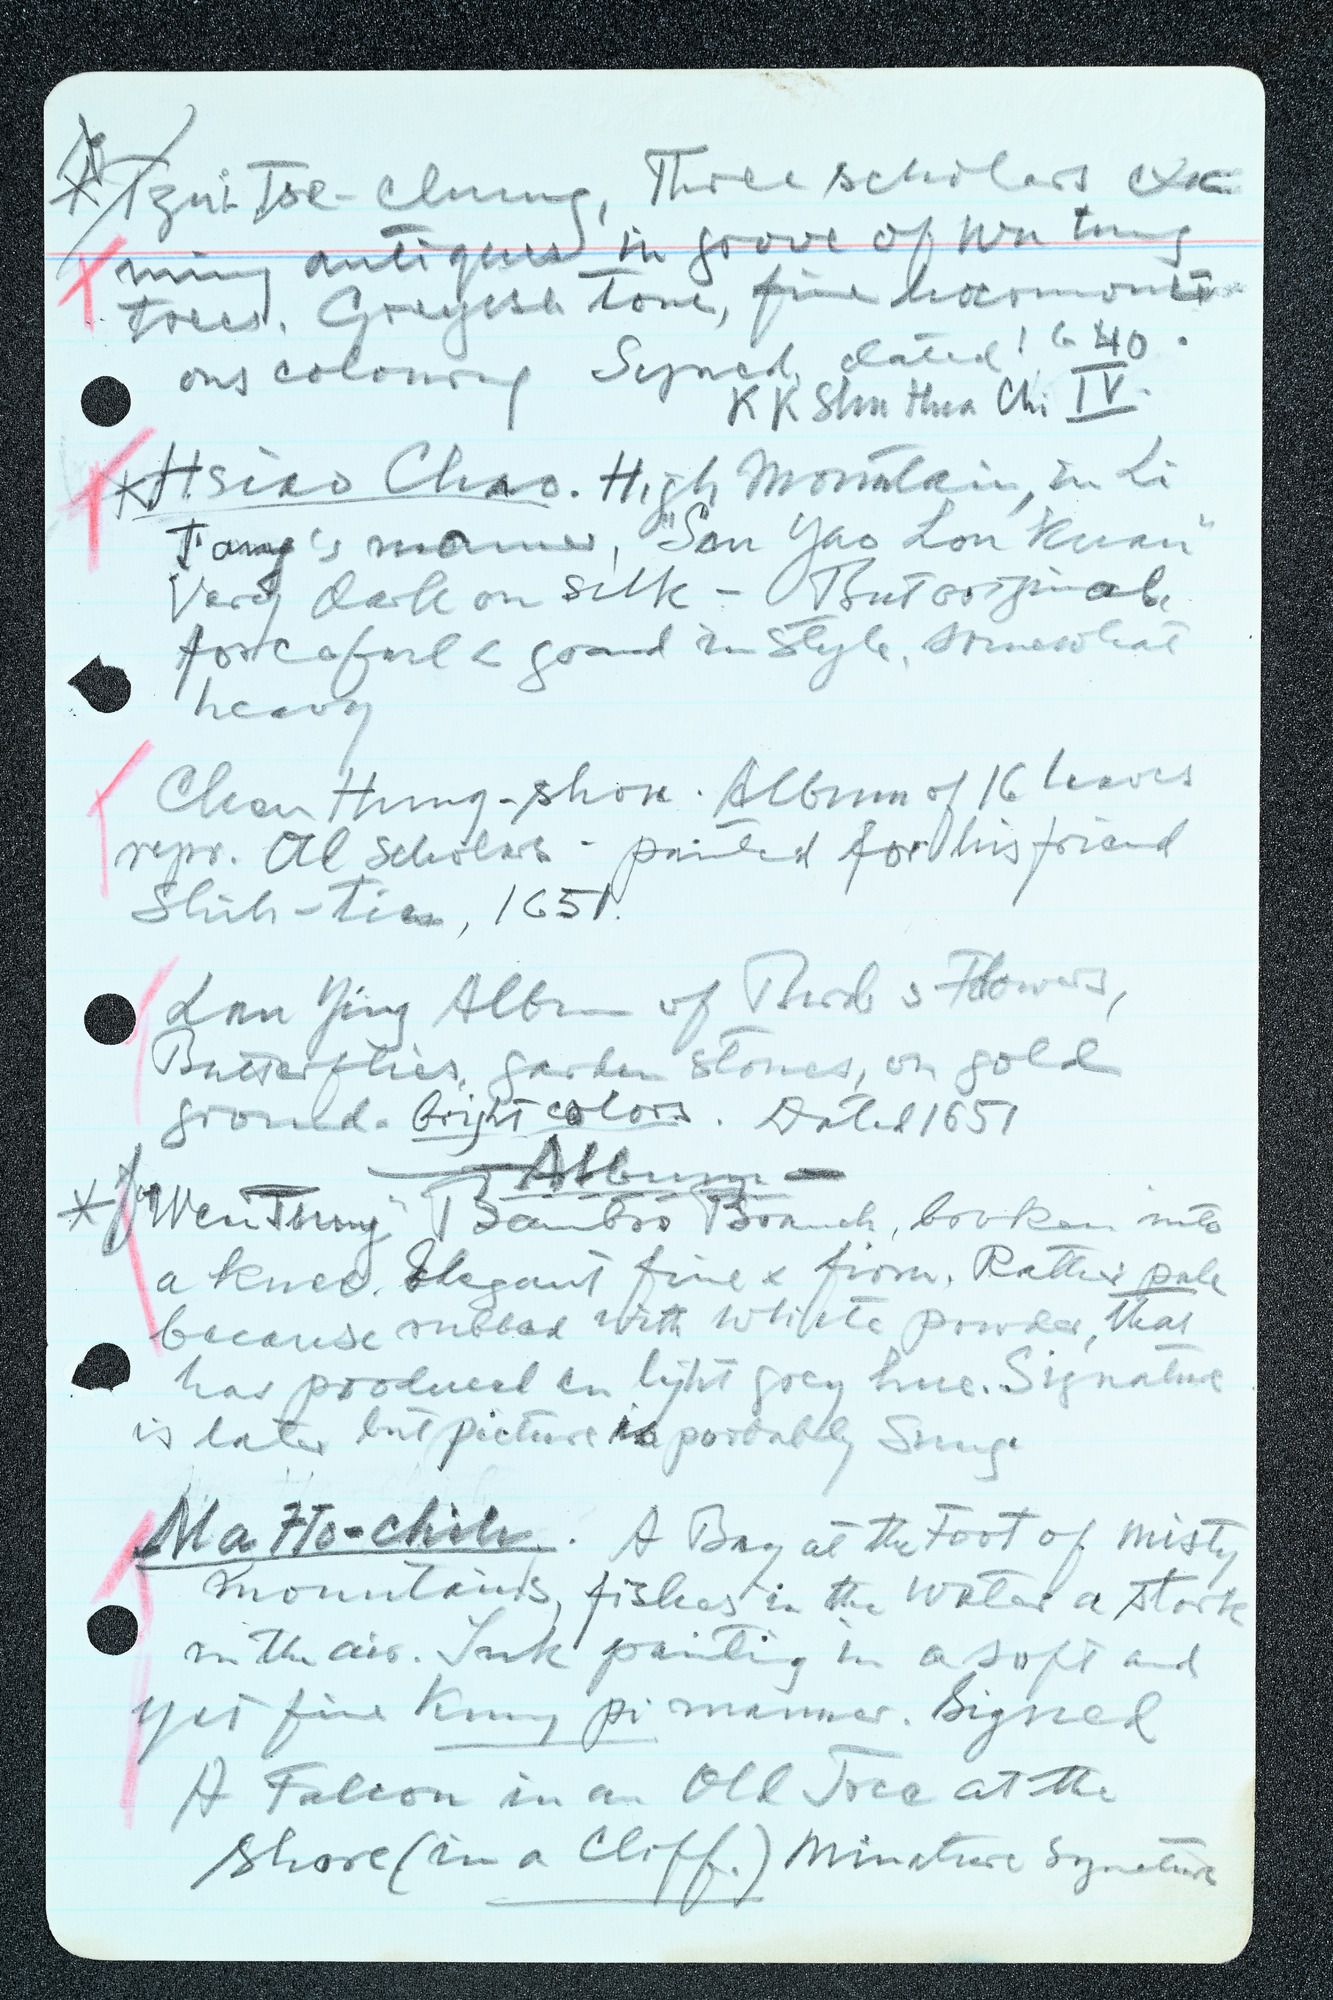 * Tzui Tse-chung, Three scholars exa
mining antiques in grove of Wu tung
trees. Greyish tone, fine harmoni
ous colouring Signed, dated 1640.
KK Shu Hua Chi IV.
* Hsiao Chao. High Mountain, in Li
Tang's manner, "San Yao Lou Kuan"
Very dark on silk - But original
forceful & grand in style, somewhat
heavy
Chen Hung-shou. Album of 16 leaves
repr. Old Scholars - painted for his friend
Shih-tien, 1651.
Lan Ying Album of Birds & Flowers,
Butterflies, garden stones, on gold
ground. bright colors. Dated 1651
Album -
* "Wen Tung" Bamboo Branch, broken into
a knee. Elegant fine & firm. Rather pale
because rubbed with white powder, that
has produced an light grey hue. Signature
is later but picture is probably Sung.
Ma Ho-chih. A Bay at the Foot of misty
mountains, fishes in the water a stork
in the air. Ink painting in a soft and
yet fine Kung pi manner. Signed
A Falcon in an Old Tree at the
shore (in a Cliff.) Minature Signature